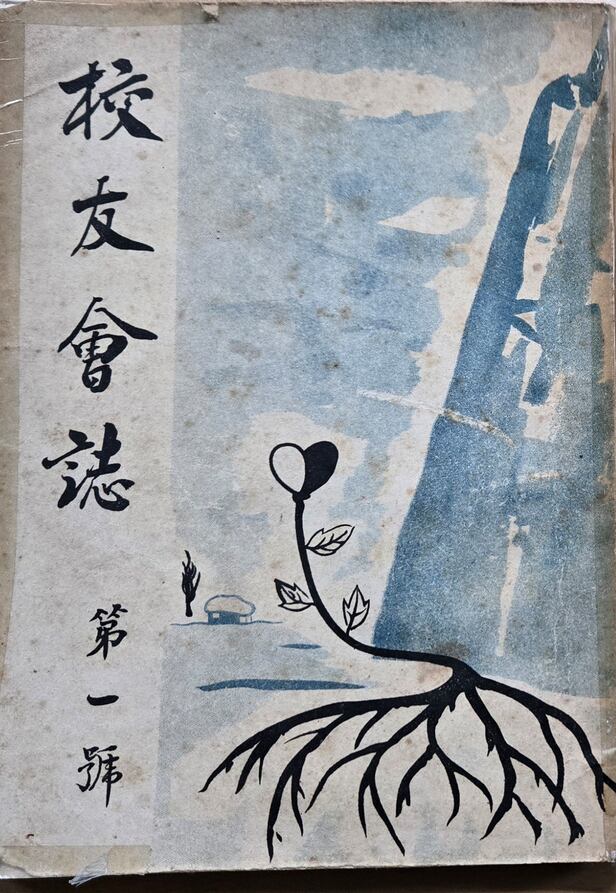 校友會誌
第一號